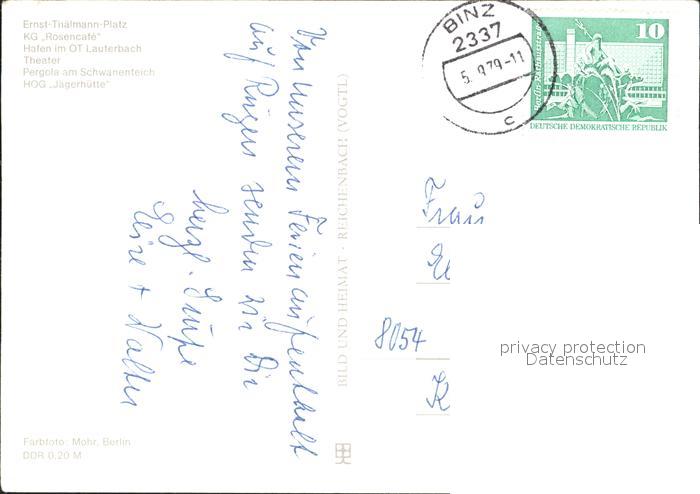 Ernst-Thälmann-Platz
KG „Rosencafé“
Hafen im OT Lauterbach
Theater
Pergola am Schwanenteich
HOG „Jägerhütte“
Von unserem Ferienaufenthalt
auf Rügen senden wir Dir
herzl. Grüße
+ Walter
Farbfoto: Mohr, Berlin
DDR 0,20 M
BILD UND HEIMAT · REICHENBACH (VOGTL)
BINZ
2337
5.9.79-11
c
10
Berlin-Rathausstraße
DEUTSCHE DEMOKRATISCHE REPUBLIK
Frau
8054
K
privacy protection
Datenschutz